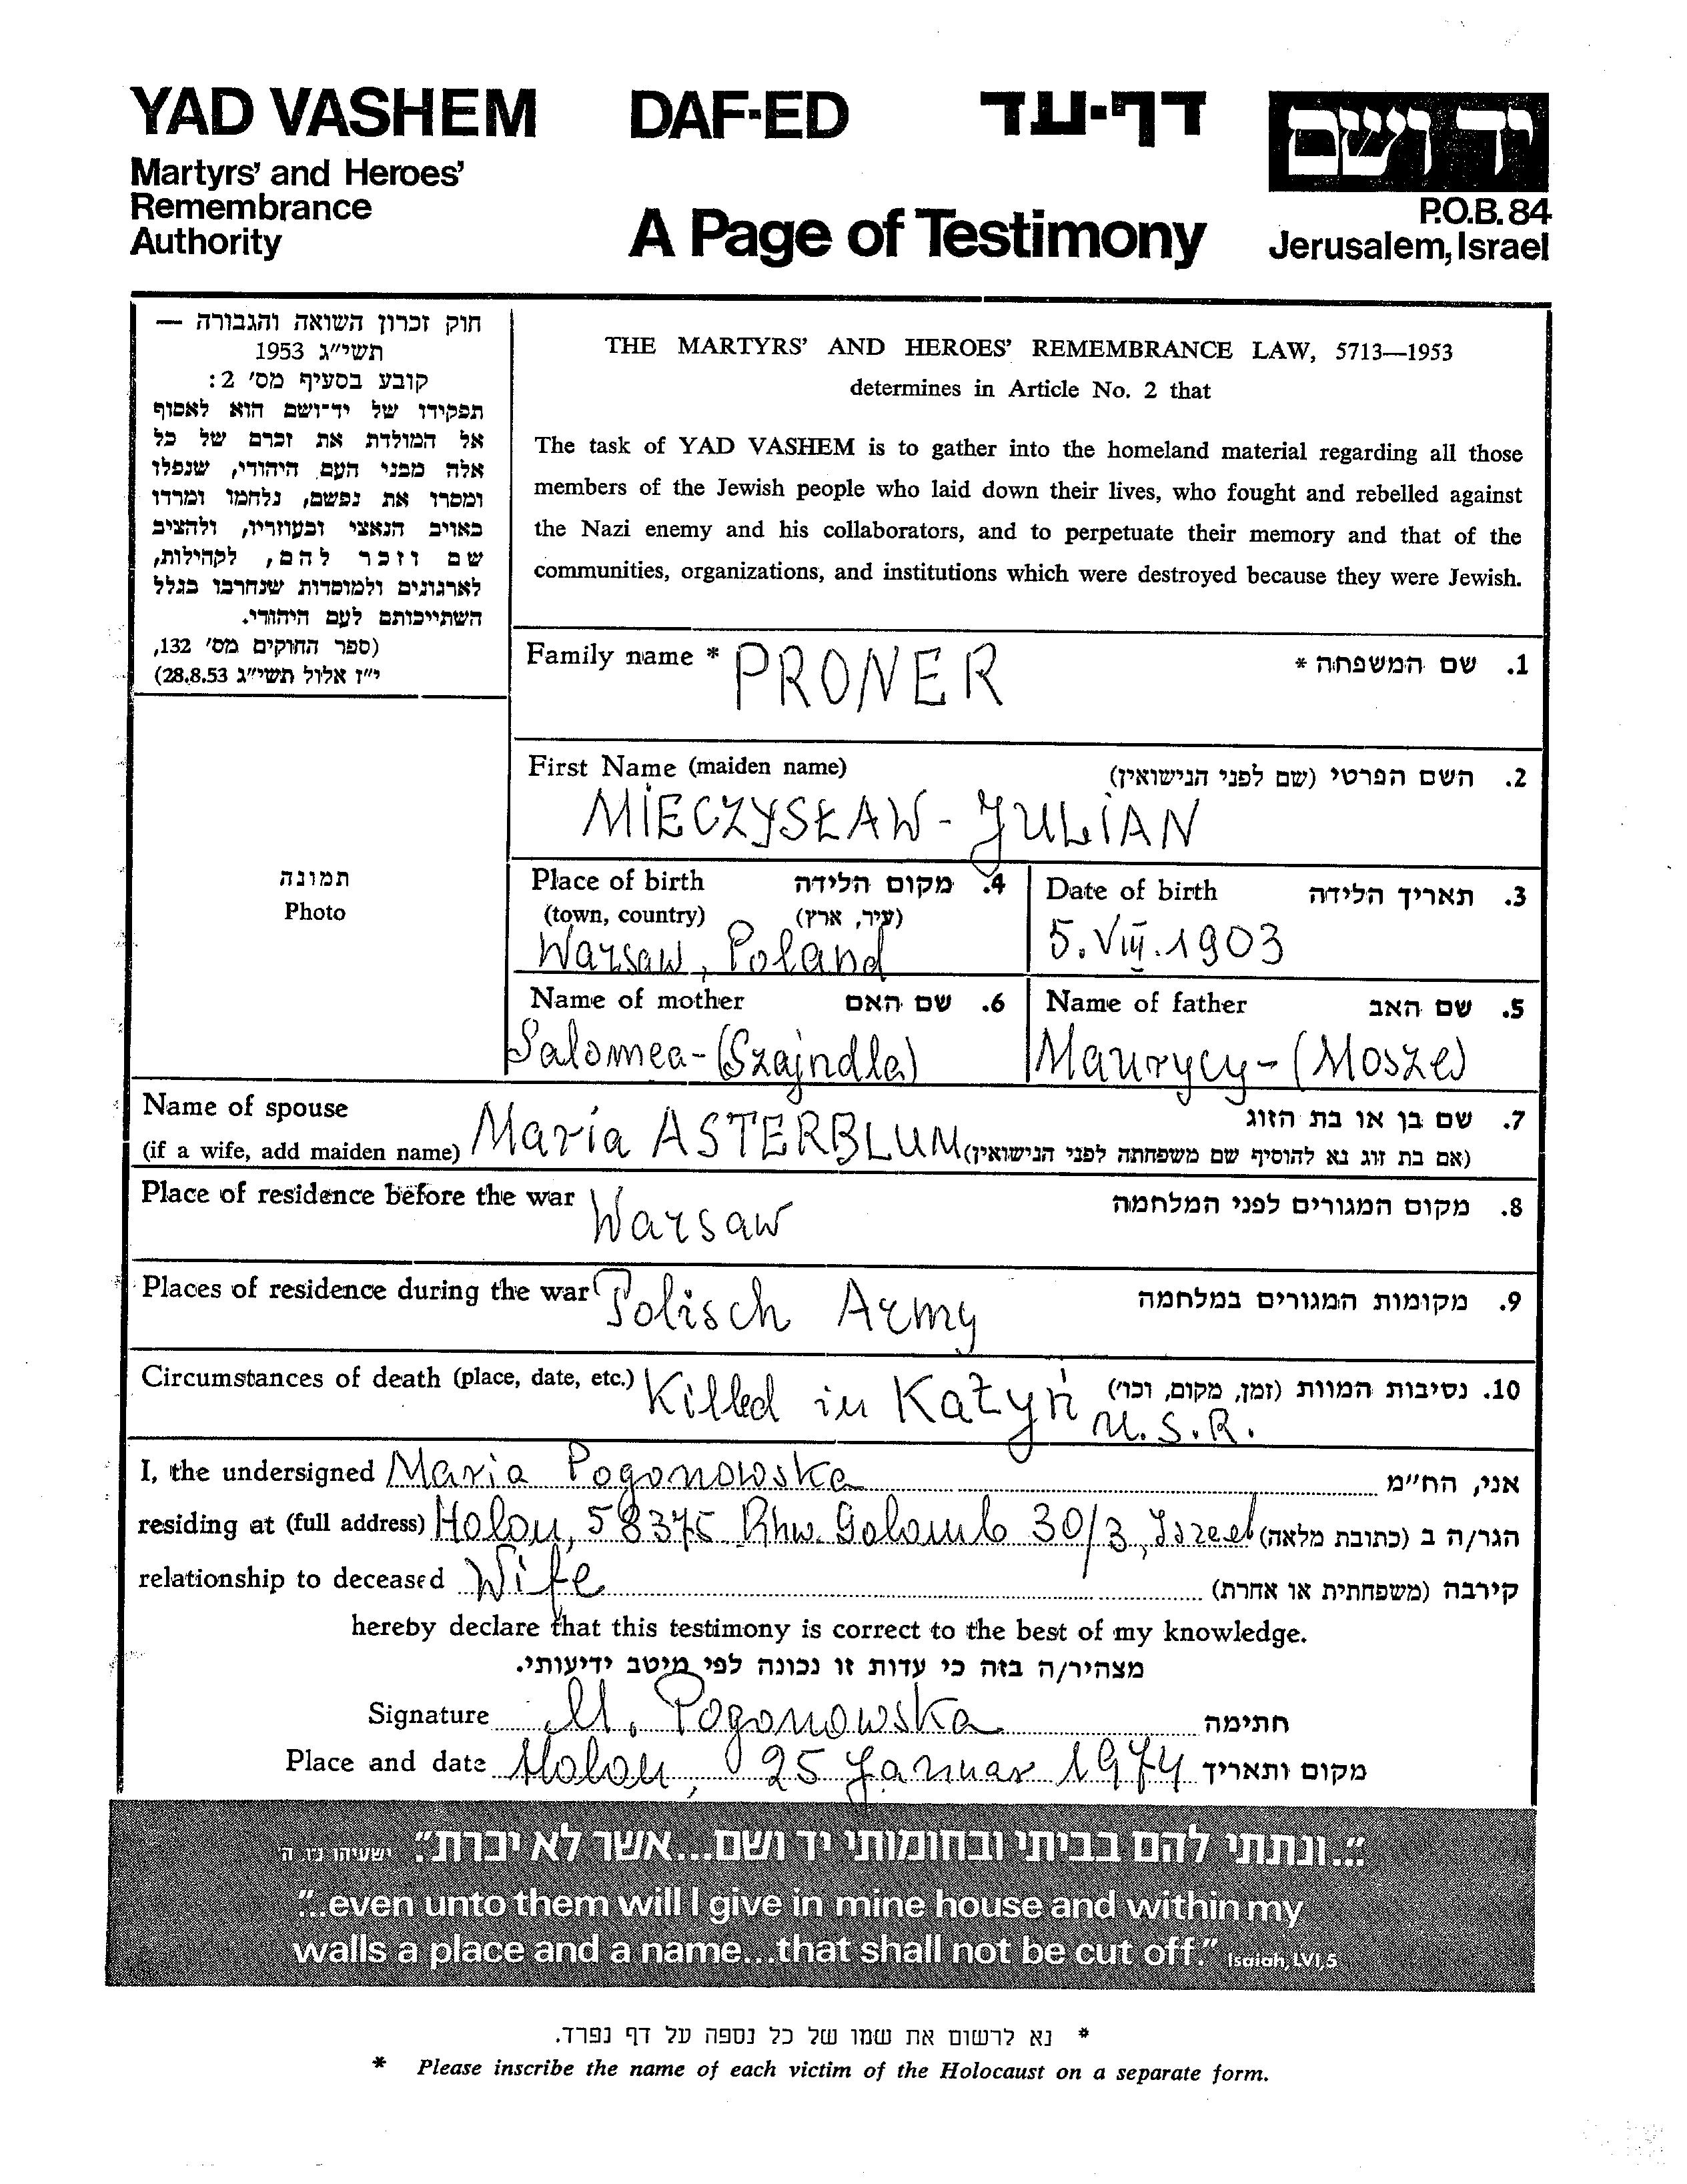 YAD VASHEM DAF-ED דף-עד יד ושם
Martyrs' and Heroes'
Remembrance
Authority
A Page of Testimony
P.O.B. 84
Jerusalem, Israel
חוק זכרון השואה והגבורה —
תשי"ג 1953
קובע בסעיף מס' 2:
תפקידו של יד-ושם הוא לאסוף
אל המולדת את זכרם של כל
אלה מבני העם היהודי, שנפלו
ומסרו את נפשם, נלחמו ומרדו
באויב הנאצי ובעוזריו, ולהציב
שם וזכר להם, לקהילות,
לארגונים ולמוסדות שנחרבו בגלל
השתייכותם לעם היהודי.
(ספר החוקים מס' 132,
י"ז אלול תשי"ג 28.8.53)
THE MARTYRS' AND HEROES' REMEMBRANCE LAW, 5713—1953
determines in Article No. 2 that
The task of YAD VASHEM is to gather into the homeland material regarding all those
members of the Jewish people who laid down their lives, who fought and rebelled against
the Nazi enemy and his collaborators, and to perpetuate their memory and that of the
communities, organizations, and institutions which were destroyed because they were Jewish.
Family name * PRONER 1. שם המשפחה *
First Name (maiden name) 2. השם הפרטי (שם לפני הנישואין)
MIECZYSŁAW - JULIAN
תמונה
Photo
Place of birth 4. מקום הלידה
(town, country) (עיר, ארץ)
Warsaw, Poland
Date of birth 3. תאריך הלידה
5. VIII. 1903
Name of mother 6. שם האם
Salomea - (Szajndla)
Name of father 5. שם האב
Maurycy - (Mosze)
Name of spouse 7. שם בן או בת הזוג
(if a wife, add maiden name) Maria ASTERBLUM (אם בת זוג נא להוסיף שם משפחתה לפני הנישואין)
Place of residence before the war Warsaw 8. מקום המגורים לפני המלחמה
Places of residence during the war Polisch Army 9. מקומות המגורים במלחמה
Circumstances of death (place, date, etc.) Killed in Katyń 10. נסיבות המוות (זמן, מקום, וכו')
U.S.R.
I, the undersigned Maria Pogonowska אני, הח"מ
residing at (full address) Holon, 58375 Rhw. Golomb 30/3, Israel הגר/ה ב (כתובת מלאה)
relationship to deceased Wife קירבה (משפחתית או אחרת)
hereby declare that this testimony is correct to the best of my knowledge.
מצהיר/ה בזה כי עדות זו נכונה לפי מיטב ידיעותי.
Signature M. Pogonowska חתימה
Place and date Holon, 25 Januar 1974 מקום ותאריך
"...ונתתי להם בביתי ובחומותי יד ושם...אשר לא יכרת". ישעיהו נו, ה
"...even unto them will I give in mine house and within my
walls a place and a name...that shall not be cut off." Isaiah, LVI, 5
* נא לרשום את שמו של כל נספה על דף נפרד.
* Please inscribe the name of each victim of the Holocaust on a separate form.